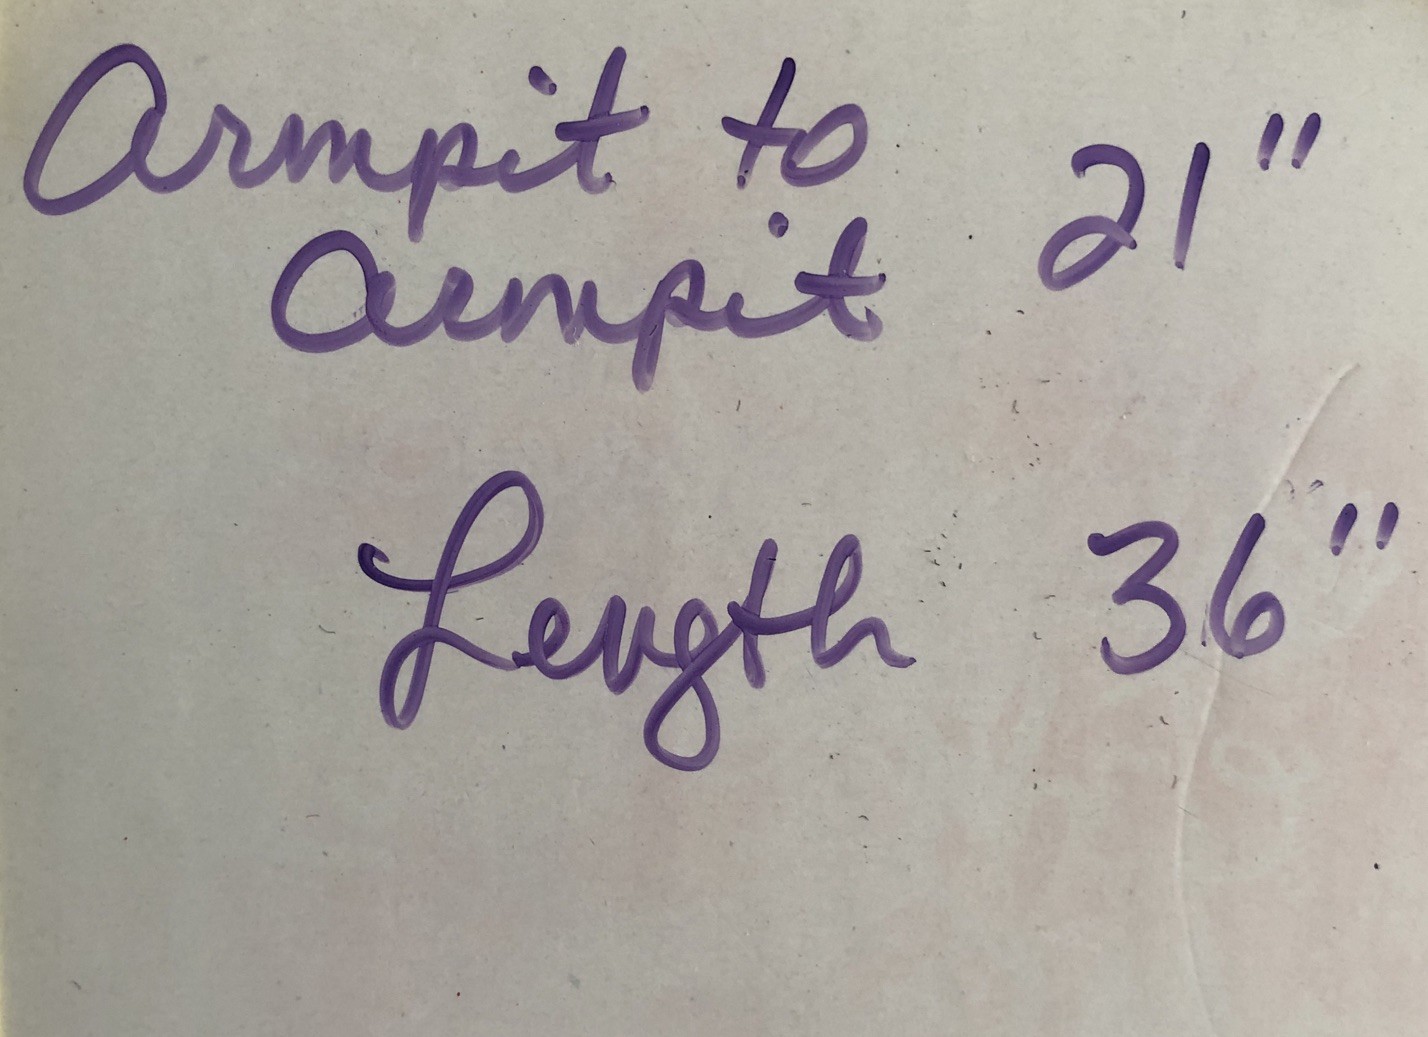 Armpit to
Armpit 21"
Length 36"